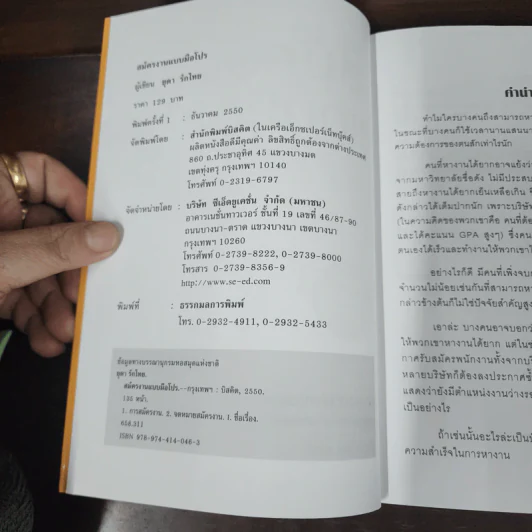 สมัครงานแบบมือโปร
ผู้เขียน ยุดา รักไทย
ราคา 129 บาท
พิมพ์ครั้งที่ 1 : ธันวาคม 2550
จัดพิมพ์โดย : สำนักพิมพ์บิสคิต (ในเครือเอ็กซเปอร์เน็ทบุ๊คส์)
ผลิตหนังสือดีมีคุณค่า ลิขสิทธิ์ถูกต้องจากต่างประเทศ
860 ถ.ประชาอุทิศ 45 แขวงบางมด
เขตทุ่งครุ กรุงเทพฯ 10140
โทรศัพท์ 0-2319-6797
จัดจำหน่ายโดย : บริษัท ซีเอ็ดยูเคชั่น จำกัด (มหาชน)
อาคารเนชั่นทาวเวอร์ ชั้นที่ 19 เลขที่ 46/87-90
ถนนบางนา-ตราด แขวงบางนา เขตบางนา
กรุงเทพฯ 10260
โทรศัพท์ 0-2739-8222, 0-2739-8000
โทรสาร 0-2739-8356-9
http://www.se-ed.com
พิมพ์ที่ : ธรรกมลการพิมพ์
โทร. 0-2932-4911, 0-2932-5433
ข้อมูลทางบรรณานุกรมหอสมุดแห่งชาติ
ยุดา รักไทย.
สมัครงานแบบมือโปร.--กรุงเทพฯ : บิสคิต, 2550.
135 หน้า.
1. การสมัครงาน. 2. จดหมายสมัครงาน. I. ชื่อเรื่อง.
650.311
ISBN 978-974-414-046-3
คำนำ
ทำไมใครบางคนถึงสามารถหา
ในขณะที่บางคนก็ใช้เวลานานแสนนา
ความต้องการของตนสักเท่าไรนัก
คนที่หางานได้ยากอาจแย้งว่า
จากมหาวิทยาลัยชื่อดัง ไม่มีประสบ
สายถึงหางานได้ยากเย็นเหลือเกิน
ดังกล่าวได้เต็มปากนัก เพราะบริษัท
(ในความคิดของพวกเขาคือ คนที่ต้อง
และได้คะแนน GPA สูงๆ) ซึ่งคน
ตนเองได้เร็วและทำงานให้พวกเขา
อย่างไรก็ดี มีคนที่เพิ่งจบ
จำนวนไม่น้อยเช่นกันที่สามารถหา
กล่าวข้างต้นก็ไม่ใช่ปัจจัยสำคัญสูง
เอาล่ะ บางคนอาจบอกว่
ให้พวกเขาหางานได้ยาก แต่ในช
กาศรับสมัครพนักงานทั้งจากบริ
หลายบริษัทก็ต้องลงประกาศซ้ำ
แสดงว่ายังมีตำแหน่งงานว่างรอ
เป็นอย่างไร
ถ้าเช่นนั้นอะไรล่ะเป็น
ความสำเร็จในการหางาน